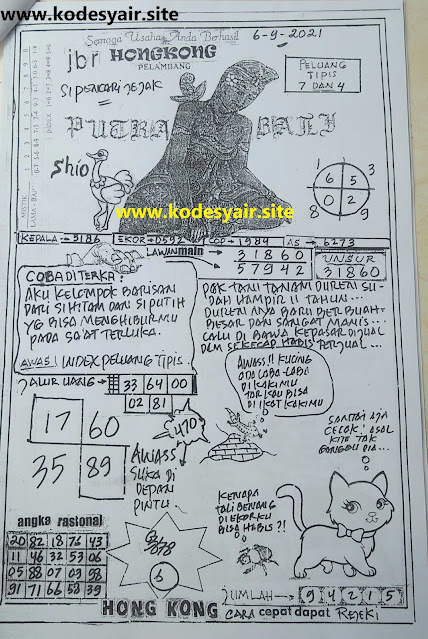 www.kodesyair.site
Semoga Usaha Anda Berhasil
6-9-2021
jbr HONGKONG
PELAMBANG
SI PENCARI JEJAK
PELUANG
TIPIS
7 DAN 4
PUTRA BALI
Shio
www.kodesyair.site
3
1
6 5
0 2
8
9
KEPALA → 3186 EKOR → 0592 COP → 1984 AS → 6273
LAWAN main
31860
57942
UNSUR
31860
COBA DITERKA:
AKU KELOMPOK BARISAN
DARI SI HITAM DAN SI PUTIH
YG BISA MENGHIBURMU
PADA SAAT TERLUKA.
AWAS! INDEX PELUANG TIPIS
PAK TANI TANAM DUREN SU-
DAH HAMPIR 11 TAHUN...
DUREN NYA BARU BERBUAH
BESAR DAN SANGAT MANIS...
LALU DI BAWA KEPASAR DIJUAL
DLM SEKECAP HABIS TERJUAL...
? ALUR UANG → 33 64 00
02 81
17 60
35 89
470
AWASS
SUKA DI
DEPAN
PINTU.
AWASS!! KUCING
ADA LABA-LABA
DI KAKIMU
TAR KAU BISA
DI IKAT KAKIMU
SANTAI AJA
CECOK! ASAL
KITA TAK
GANGGU DIA...
KENAPA
TALI BENANG
DI EKORKU
BISA HABIS?!
angka rasional
20 82 18 76 43
11 46 32 53 06
05 88 07 09 98
91 71 66 58 39
6
JUMLAH → 9 4 2 1 5
HONG KONG CARA cepat dapat REJEKI